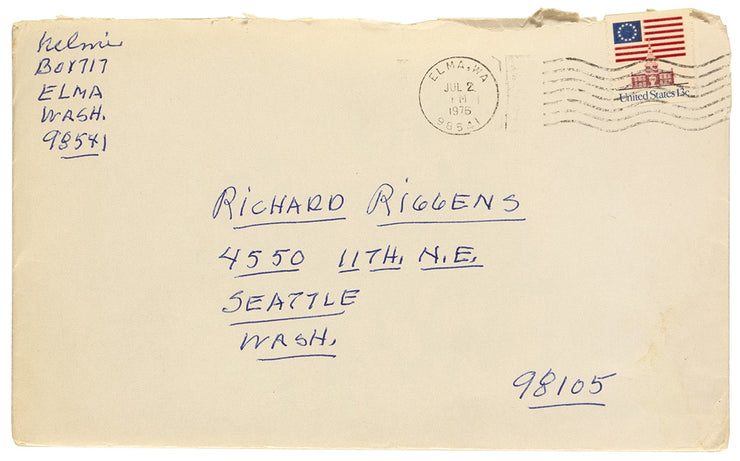 Kelmie
Box 717
ELMA
WASH.
98541
ELMA, WA
JUL 2
PM
1976
98541
United States 13c
RICHARD RIGGENS
4550 11TH. N.E.
SEATTLE
WASH.
98105